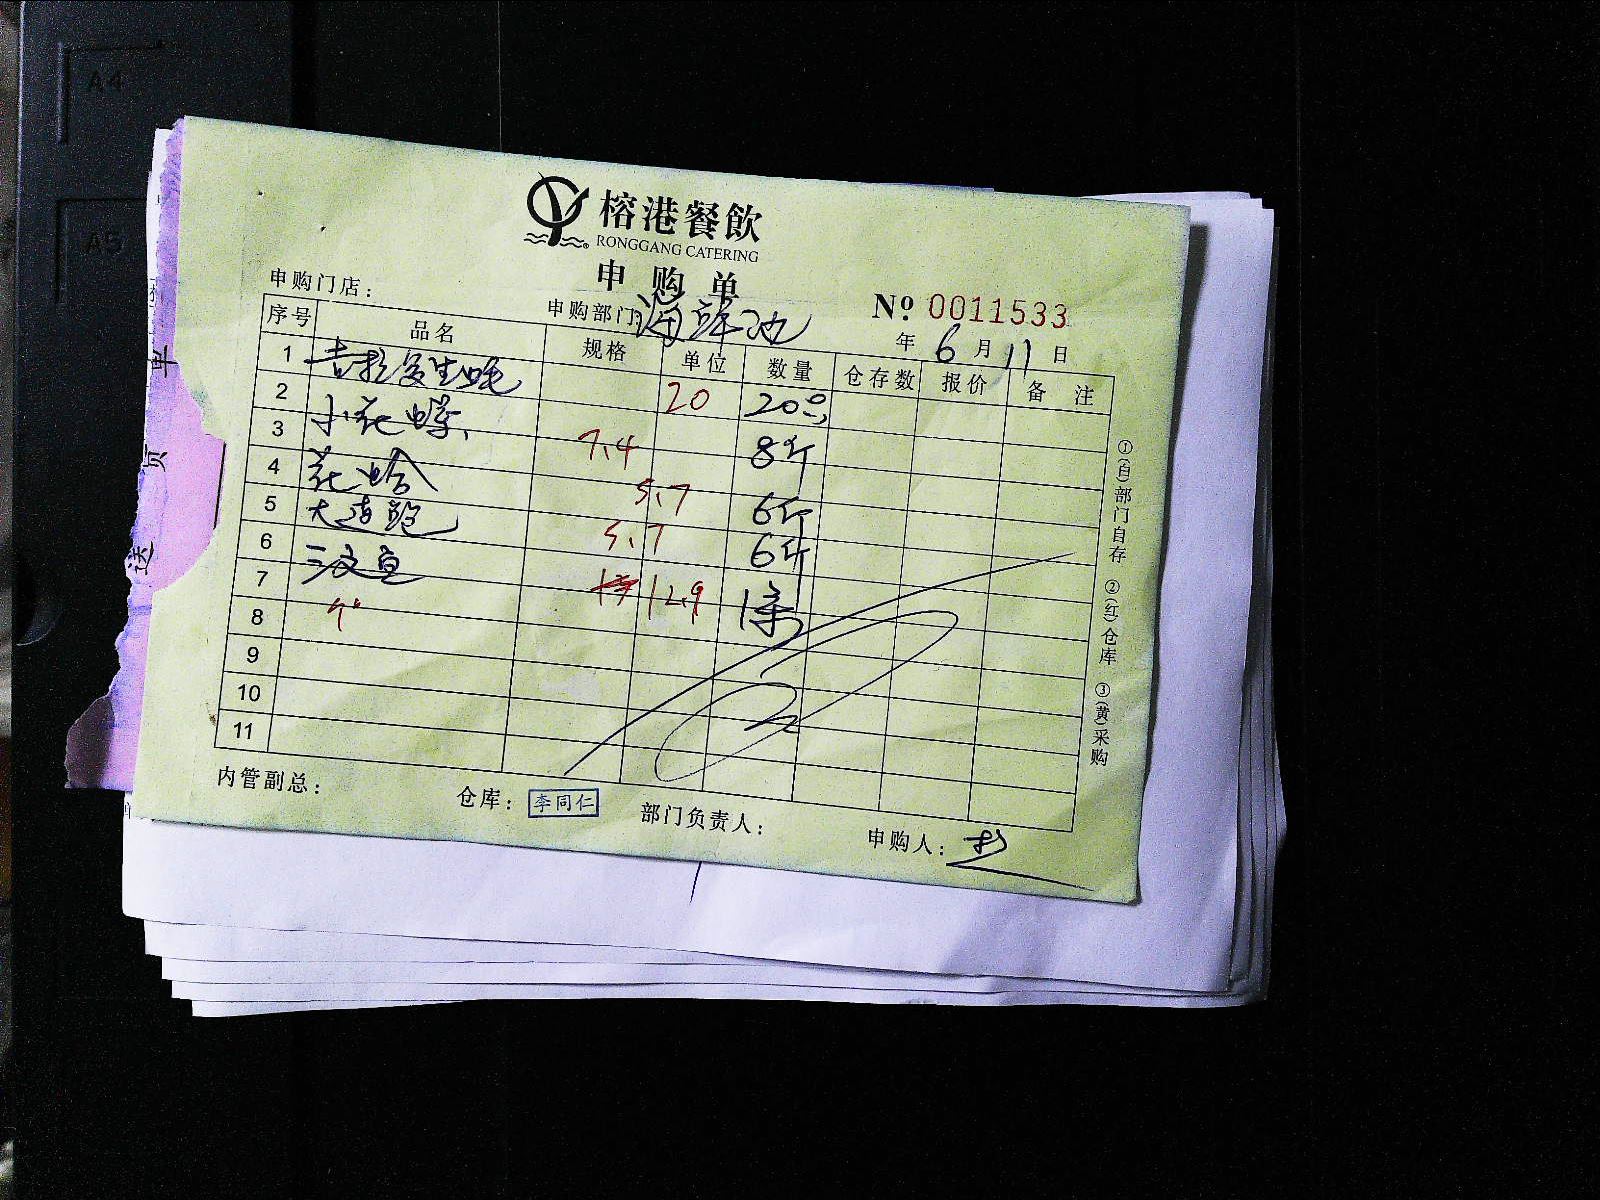 A4
A5
榕港餐飲
RONGGANG CATERING
申购单
申购门店：
申购部门：海鲜池
№ 0011533
年 6 月 11 日
序号 品名 规格 单位 数量 仓存数 报价 备注
1 吉拉多生蚝 20 20只
2 小花螺 7.4 8斤
3 花蛤 5.7 6斤
4 大连鲍 5.7 6斤
5 三文鱼 12.9 1条
6
7
8
9
10
11
内管副总：
仓库：李同仁
部门负责人：
申购人：
①(白)部门自存 ②(红)仓库 ③(黄)采购
单
页
送